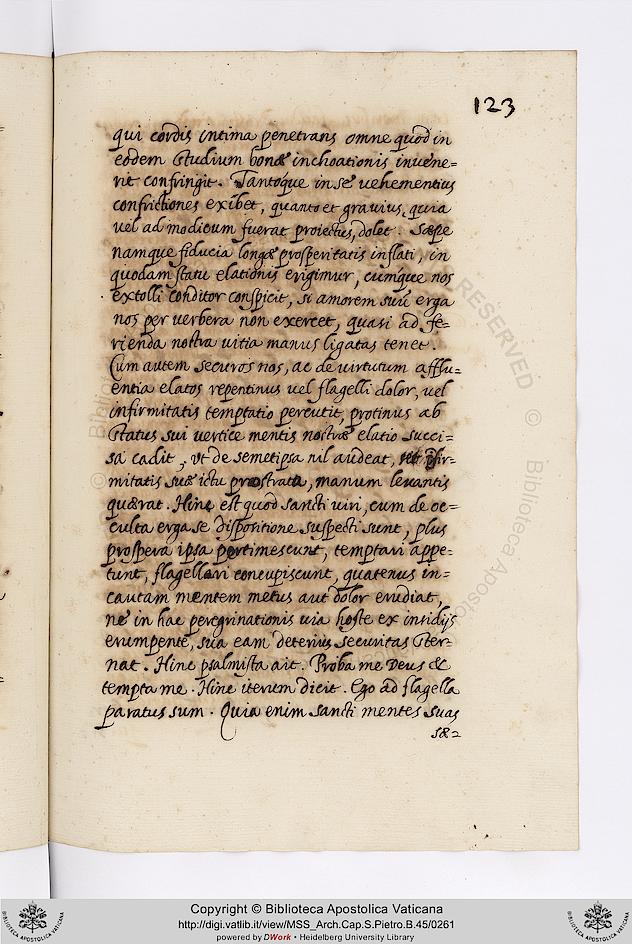 123
qui cordis intima penetrans omne quod in
eodem studium bonæ inchoationis invene=
rit confringit. Tantoque in se vehementius
confrictiones exibet, quanto et gravius, quia
vel ad modicum fuerat proiectus, dolet. Sæpe
namque fiducia longæ prosperitatis inflati, in
quodam statu elationis erigimur, cumque nos
extolli conditor conspicit, si amorem suū erga
nos per verbera non exercet, quasi ad fe=
rienda nostra vitia manus ligatas tenet.
Cum autem securos nos, ac de virtutum afflu=
entia elatos repentinus vel flagelli dolor, vel
infirmitatis temptatio percutit, protinus ab
status sui vertice mentis nostræ elatio succi=
sa cadit, ut de semetipsa nil audeat, fir=
mitatis suæ ictu prostrata, manum levantis
quærat. Hinc est quod sancti viri, cum de oc=
culta erga se dispositione suspecti sunt, plus
prospera ipsa pertimescunt, temptari appe=
tunt, flagellari concupiscunt, quatenus in=
cautam mentem metus aut dolor erudiat,
ne in hac peregrinationis via hoste ex insidijs
erumpente, sua eam deterius securitas ster=
nat. Hinc psalmista ait. Proba me Deus &
tempta me. Hinc iterum dicit. Ego ad flagella
paratus sum. Quia enim sancti mentes suas
RESERVED © Biblioteca Aposto
Copyright © Biblioteca Apostolica Vaticana
http://digi.vatlib.it/view/MSS_Arch.Cap.S.Pietro.B.45/0261
powered by DWork • Heidelberg University Library